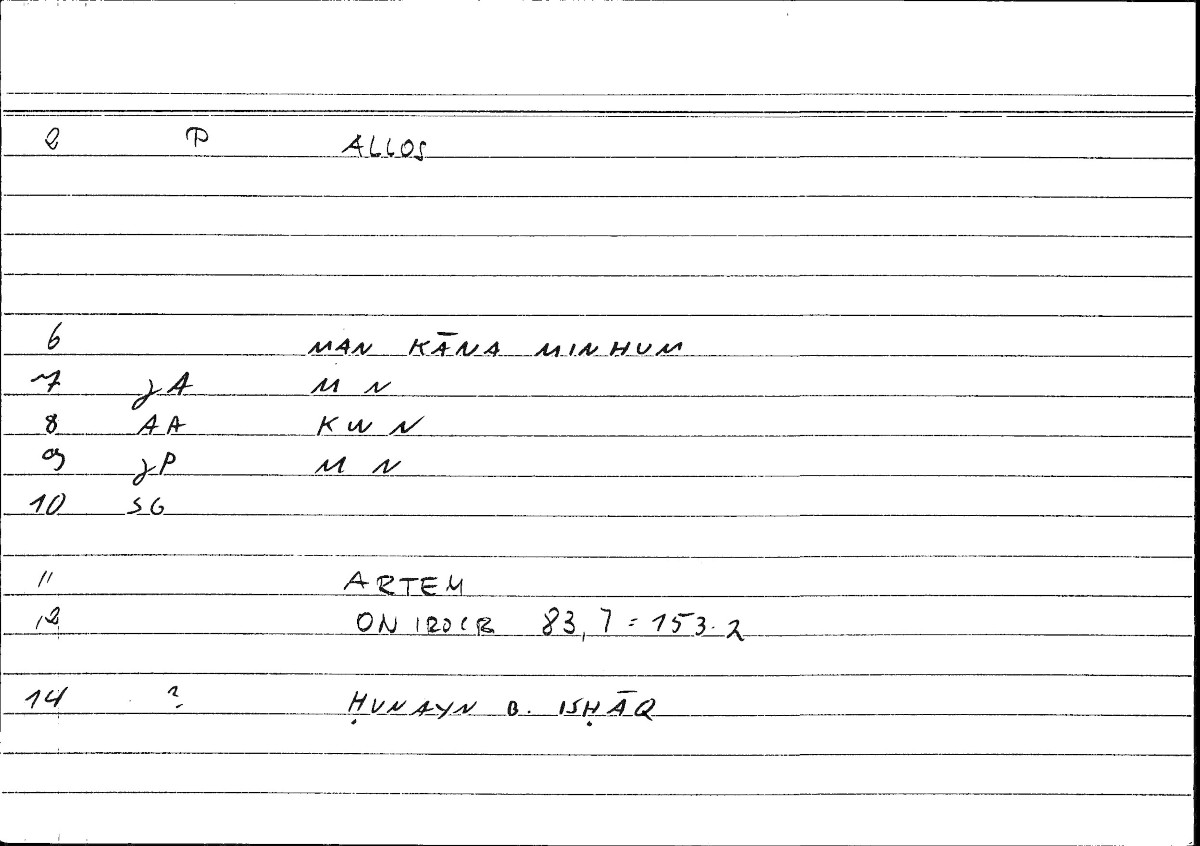 2 P ALLOS
6 MAN KĀNA MINHUM
7 JA M N
8 AA KWN
9 JP M N
10 SG
11 ARTEM
12 ONIROCR 83,7=153.2
14 ? ḤUNAYN B. ISḤĀQ